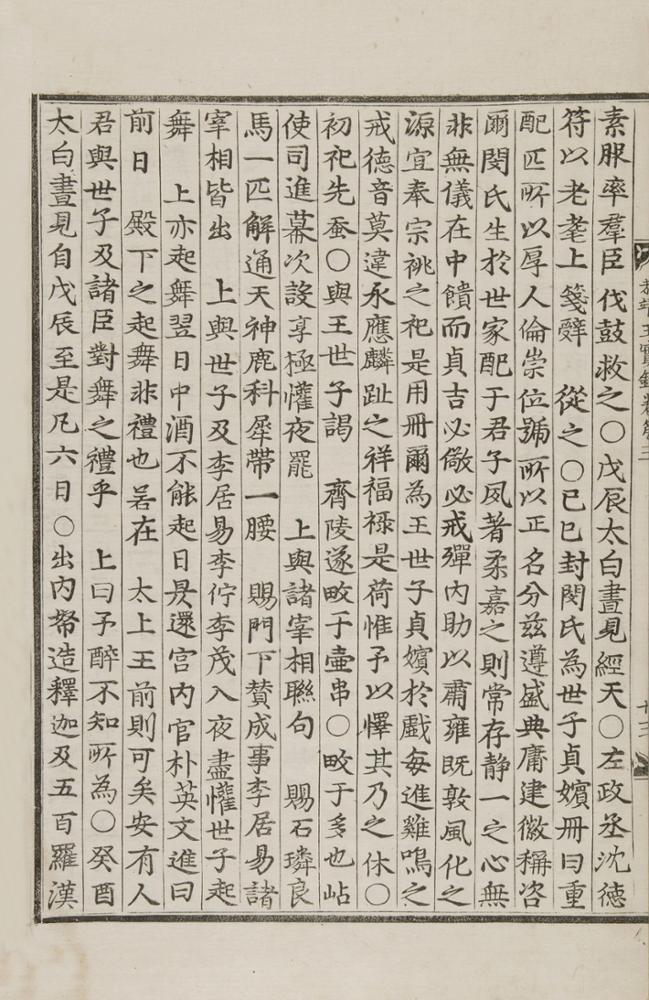 恭靖王實錄卷第三
十三
素服率羣臣伐鼓救之○戊辰太白晝見經天○左政丞沈德
符以老耄上箋辭 從之○己巳封閔氏爲世子貞嬪冊曰重
配匹所以厚人倫崇位號所以正名分玆遵盛典庸建徽稱咨
爾閔氏生於世家配于君子夙著柔嘉之則常存静一之心無
非無儀在中饋而貞吉必儆必戒彈内助以肅雍旣敦風化之
源宜奉宗祧之祀是用冊爾爲王世子貞嬪於戲每進雞鳴之
戒德音莫違永應麟趾之祥福禄是荷惟予以懌其乃之休○
初祀先蚕○與王世子謁 齊陵遂畋于壷串○畋于多也岾
使司進幕次設享極懽夜罷 上與諸宰相聯句 賜石璘良
馬一匹解通天神鹿科犀帶一腰 賜門下賛成事李居易諸
宰相皆出 上與世子及李居易李佇李茂入夜盡懽世子起
舞 上亦起舞翌日中酒不能起日昃還宫内官朴英文進曰
前日 殿下之起舞非禮也若在 太上王前則可矣安有人
君與世子及諸臣對舞之禮乎 上曰予醉不知所為○癸酉
太白晝見自戊辰至是凡六日○出内帑造釋迦及五百羅漢